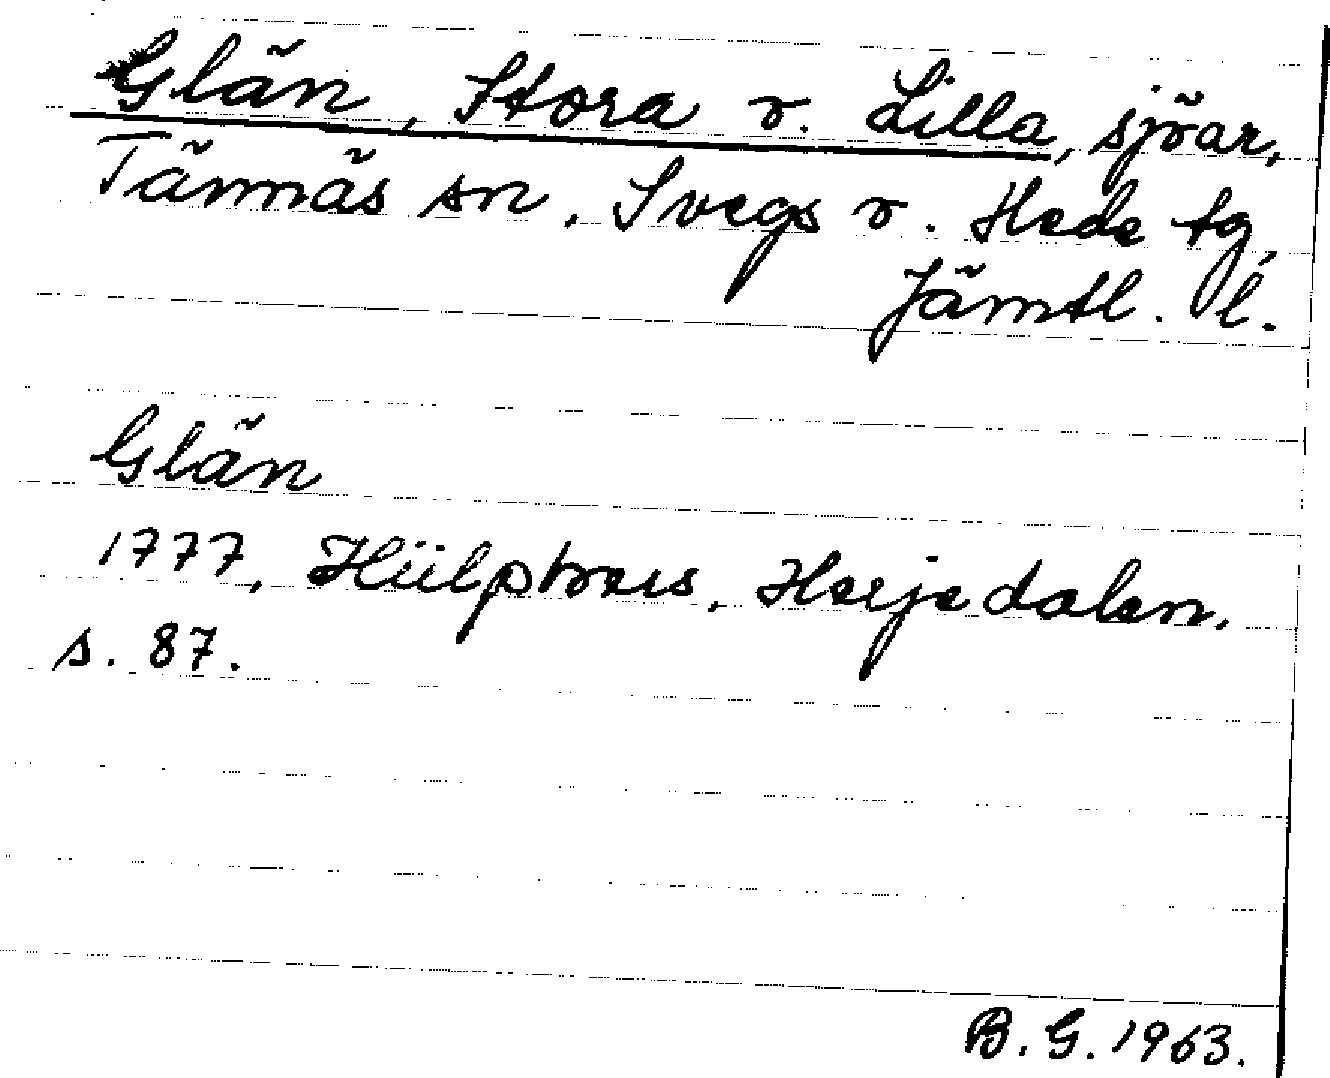 Glän, Stora o. Lilla, sjöar,
Tännäs sn. Svegs o. Hede tg,
Jämtl. l.
Glän
1777, Hülphers, Herjedalen.
s. 87.
B. G. 1963.